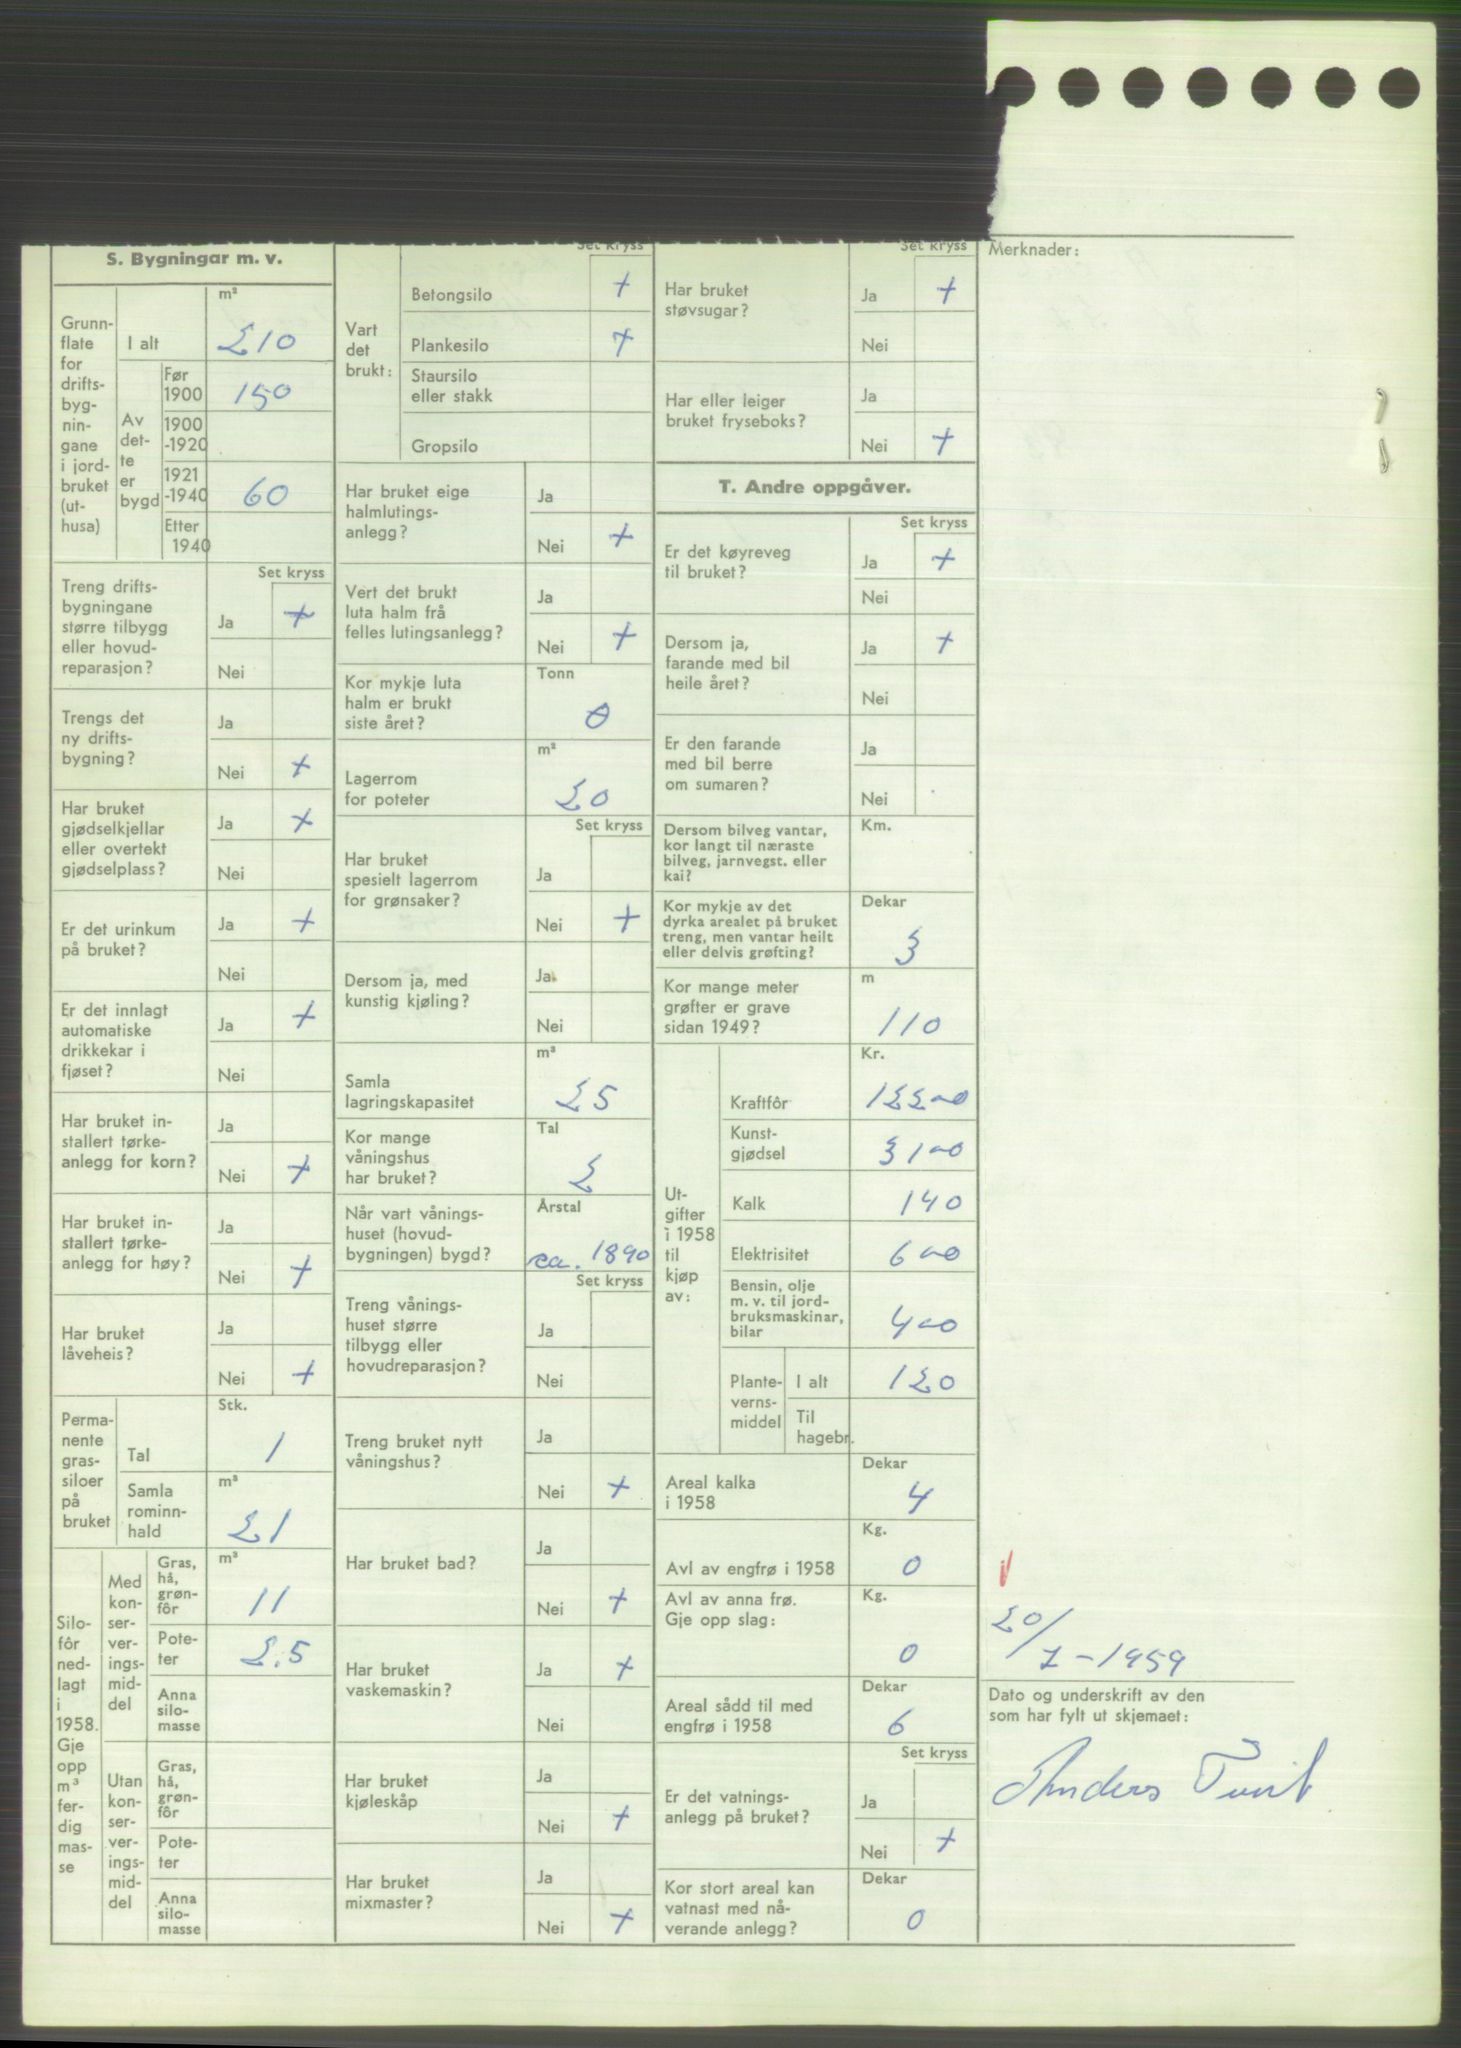 S. Bygningar m. v.
Grunn-
flate
for
drifts-
byg-
nin-
gane
i jord-
bruket
(ut-
husa)
I alt
m²
210
Av
det-
te
er
bygd
Før
1900
150
1900
-1920
1921
-1940
60
Etter
1940
Set kryss
Treng drifts-
bygningane
større tilbygg
eller hovud-
reparasjon?
Ja +
Nei
Trengs det
ny drifts-
bygning?
Ja
Nei +
Har bruket
gjødselkjellar
eller overtekt
gjødselplass?
Ja +
Nei
Er det urinkum
på bruket?
Ja +
Nei
Er det innlagt
automatiske
drikkekar i
fjøset?
Ja +
Nei
Har bruket in-
stallert tørke-
anlegg for korn?
Ja
Nei +
Har bruket in-
stallert tørke-
anlegg for høy?
Ja
Nei +
Har bruket
låveheis?
Ja
Nei +
Perma-
nente
gras-
siloer
på
bruket
Tal
Stk.
1
Samla
rominn-
hald
m³
21
Silo-
fôr
ned-
lagt
i
1958.
Gje
opp
m³
fer-
dig
mas-
se
Med
kon-
ser-
ver-
ings-
mid-
del
Gras,
hå,
grøn-
fôr
m³
11
Pote-
ter
2.5
Anna
silo-
masse
Utan
kon-
ser-
ver-
ings-
mid-
del
Gras,
hå,
grøn-
fôr
Pote-
ter
Anna
silo-
masse
Set kryss
Vart
det
brukt:
Betongsilo +
Plankesilo +
Staursilo
eller stakk
Gropsilo
Har bruket eige
halmlutings-
anlegg?
Ja
Nei +
Vert det brukt
luta halm frå
felles lutingsanlegg?
Ja
Nei +
Kor mykje luta
halm er brukt
siste året?
Tonn
0
Lagerrom
for poteter
m²
20
Set kryss
Har bruket
spesielt lagerrom
for grønsaker?
Ja
Nei +
Dersom ja, med
kunstig kjøling?
Ja
Nei
Samla
lagringskapasitet
m³
25
Kor mange
våningshus
har bruket?
Tal
2
Når vart vånings-
huset (hovud-
bygningen) bygd?
Årstal
ca. 1890
Set kryss
Treng vånings-
huset større
tilbygg eller
hovudreparasjon?
Ja
Nei
Treng bruket nytt
våningshus?
Ja
Nei +
Har bruket bad?
Ja
Nei +
Har bruket
vaskemaskin?
Ja +
Nei
Har bruket
kjøleskåp
Ja
Nei +
Har bruket
mixmaster?
Ja
Nei +
Set kryss
Har bruket
støvsugar?
Ja +
Nei
Har eller leiger
bruket fryseboks?
Ja
Nei +
T. Andre oppgåver.
Set kryss
Er det køyreveg
til bruket?
Ja +
Nei
Dersom ja,
farande med bil
heile året?
Ja +
Nei
Er den farande
med bil berre
om sumaren?
Ja
Nei
Dersom bilveg vantar,
kor langt til næraste
bilveg, jarnvegst. eller
kai?
Km.
Kor mykje av det
dyrka arealet på bruket
treng, men vantar heilt
eller delvis grøfting?
Dekar
3
Kor mange meter
grøfter er grave
sidan 1949?
m
110
Ut-
gifter
i 1958
til
kjøp
av:
Kr.
Kraftfôr 12200
Kunst-
gjødsel 3100
Kalk 140
Elektrisitet 600
Bensin, olje
m. v. til jord-
bruksmaskinar,
bilar 400
Plante-
verns-
middel
I alt 120
Til
hagebr.
Areal kalka
i 1958
Dekar
4
Avl av engfrø i 1958
Kg.
0
Avl av anna frø.
Gje opp slag:
Kg.
0
Areal sådd til med
engfrø i 1958
Dekar
6
Set kryss
Er det vatnings-
anlegg på bruket?
Ja
Nei +
Kor stort areal kan
vatnast med nå-
verande anlegg?
Dekar
0
Merknader:
20/7-1959
Dato og underskrift av den
som har fylt ut skjemaet:
Anders Tveit